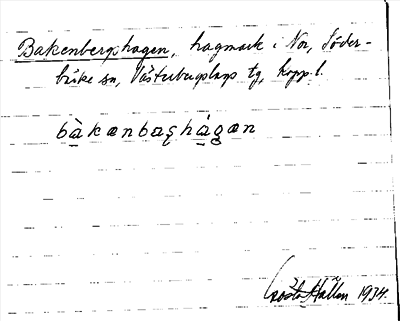 Bakenbergshagen, hagmark i Nor, Söder-
bärke sn, Västerbergslags tg, kopp. l.
bàkanbaʂhágan
Gösta Hallén 1934.